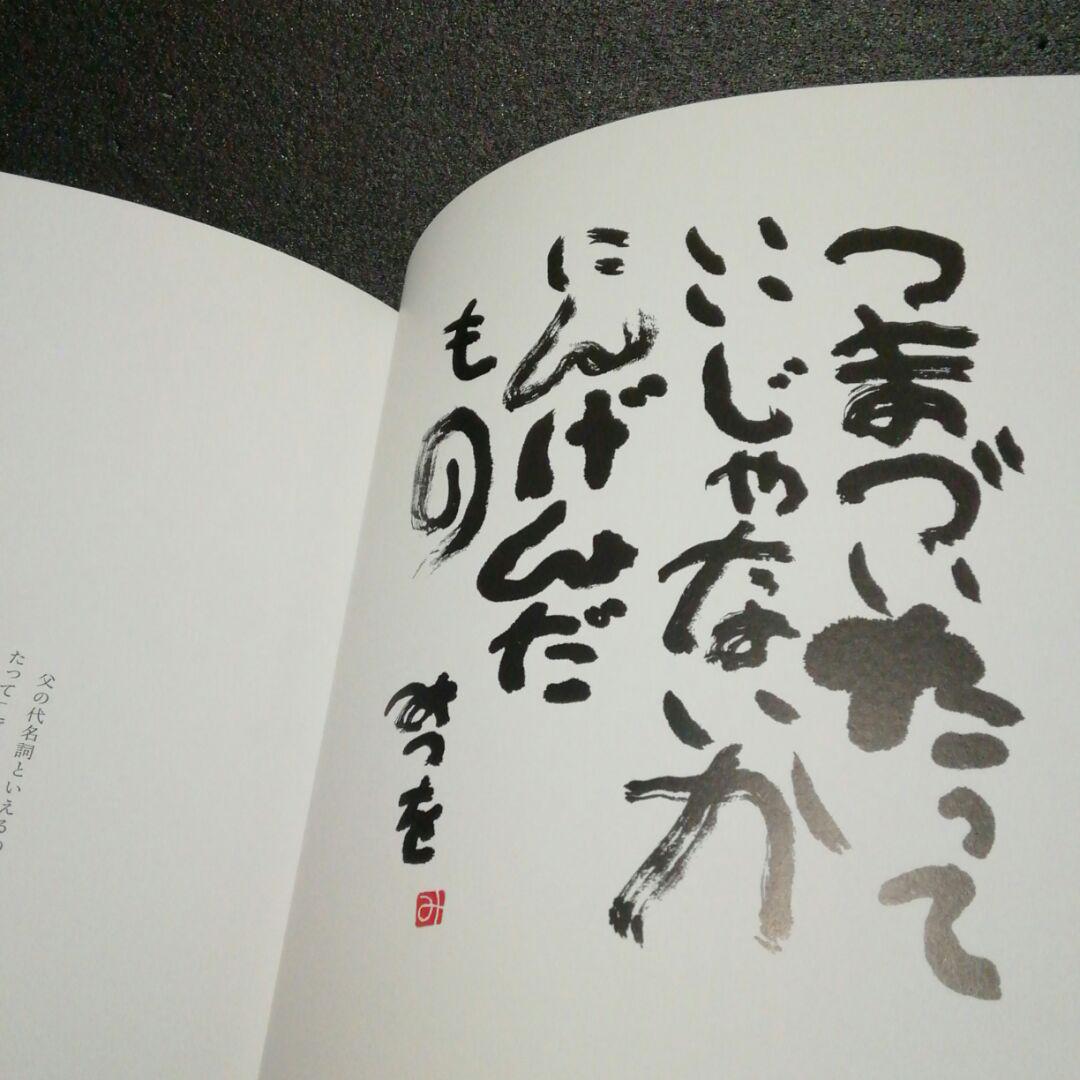 つまづいたって
いいじゃないか
にんげんだ
もの
みつを
み
父の代名詞といえる
たって